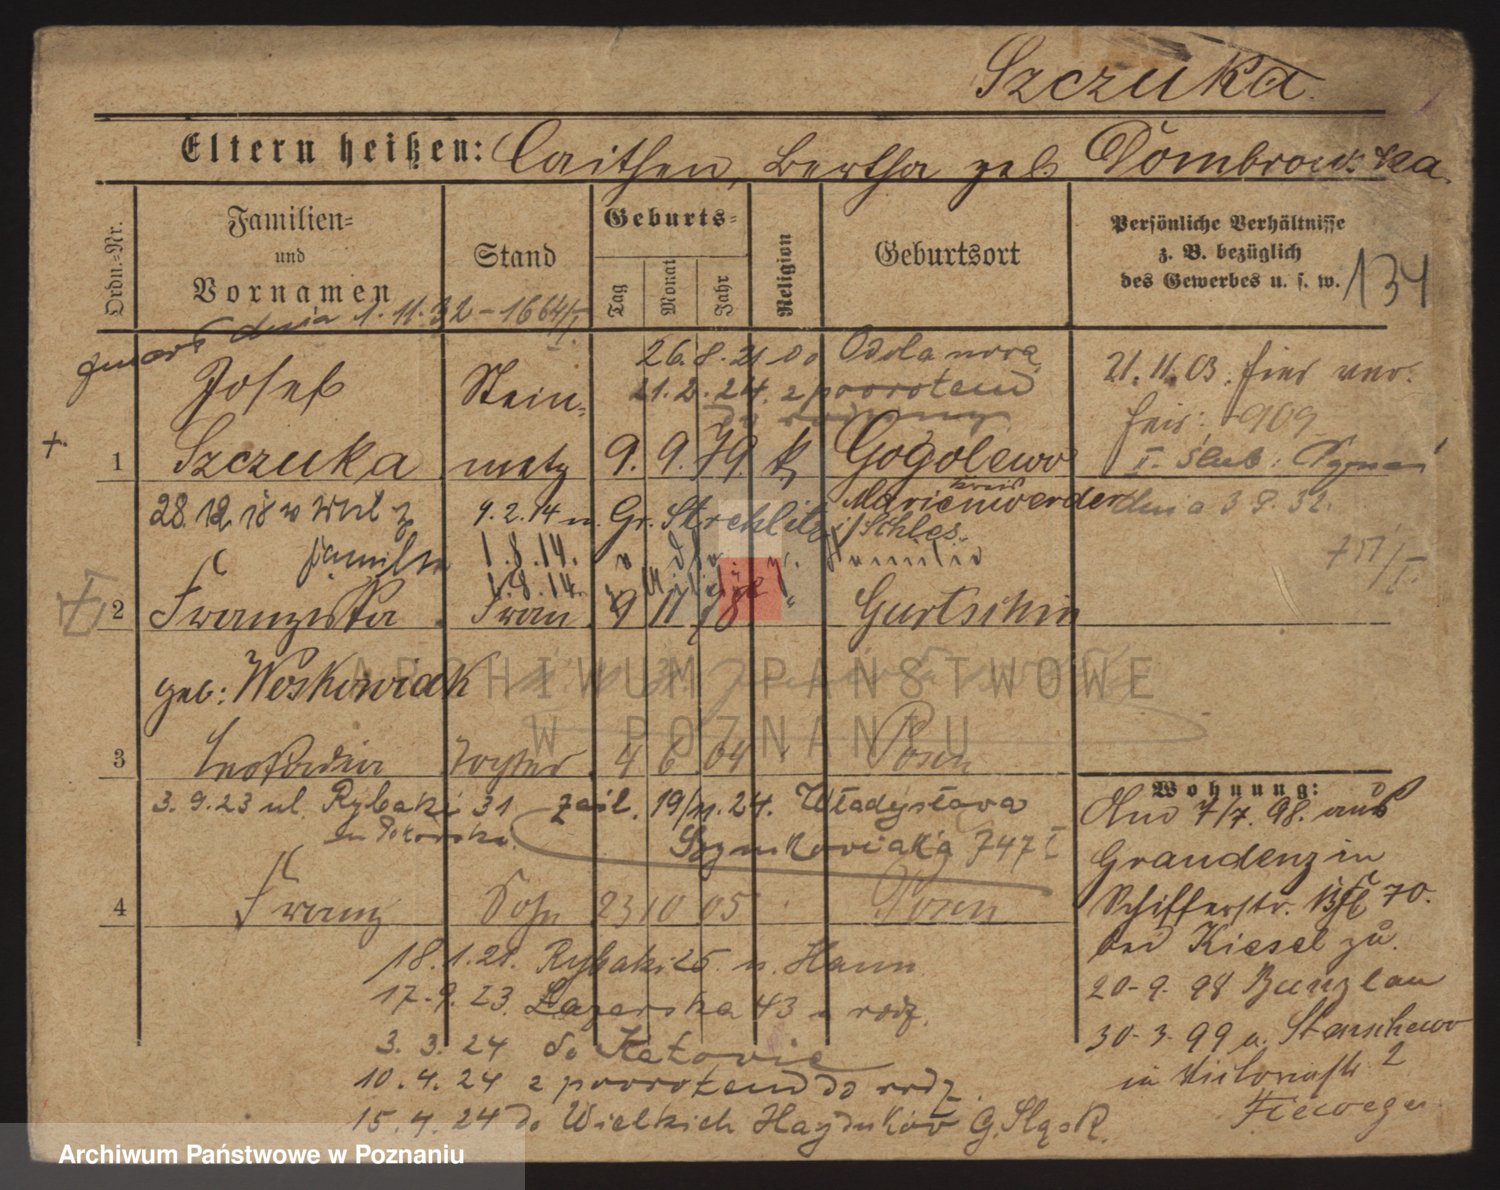 Szczuka
Eltern heißen: Caithen, Bertha geb. Dombrowska.
Ordn.-Nr.
Familien-
und
Vornamen
Stand
Geburts-
Tag
Monat
Jahr
Religion
Geburtsort
Persönliche Verhältnisse
z. B. bezüglich
des Gewerbes u. s. w.
134
dnia 1. 11. 32 - 1664/I
26. 8. 21 do Odolanova
21. 2. 24. z povrotem
21. 11. 03. hier ver.
Josef Stein-
+ 1 Szczuka metz 9. 9. 79 k Gogolewo
I. Ślub:
Kreis
Marienwerder dnia 3 9. 32.
28. 12. 18 9. 2. 14 n. Gr. Strehlitz i/Schles.
Familie 1. 8. 14. Familie
757/I.
2 Franziska Frau 9 11 78 " Gurtschin
geb: Woskowiak
3 Leokadia Tochter 4 6 04 Posen
3. 9. 23 ul. Rybaki 31 zaśl. 19/11. 24. Władysława
Szymkowiaka 747 I
4 Franz Sohn 23 10 05 Posen
18. 1. 21. Rybaki 25 n. Hann
17. 9. 23. Lazarska 43 z rodz.
3. 3. 24 do Katovic
10. 4. 24 z povrotem do rodz.
15. 4. 24 do Wielkich Hajdukóv G. Śląsk.
Wohnung:
Am 7/7. 98. aus
Graudenz in
Schifferstr. 13 70.
bei Kiesel zu.
20. 9. 98 Bunzlau
30. 3. 99 a. Stenschewo
in Viktoriastr. 2
Fieweger
ARCHIWUM PAŃSTWOWE
W POZNANIU
Archiwum Państwowe w Poznaniu